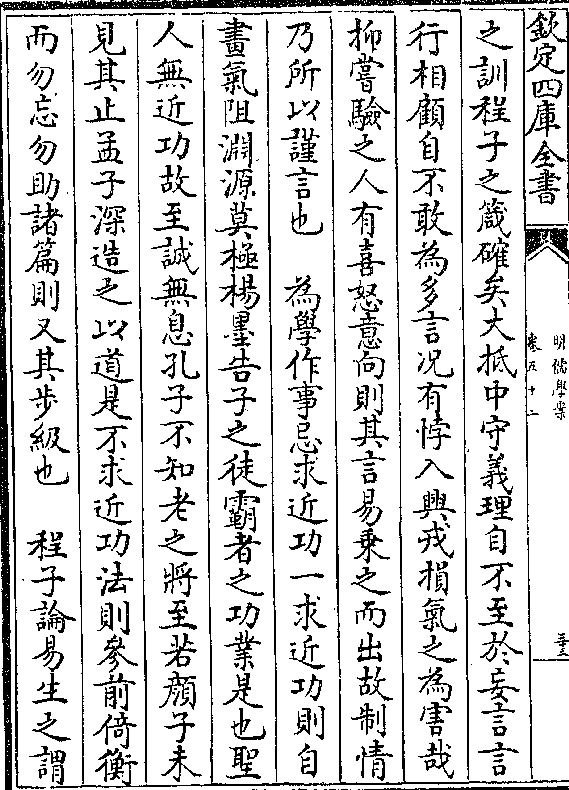 欽定四庫全書
明儒學案
卷五十二
之訓程子之箴確矣大抵中守義理自不至於妄言言
行相顧自不敢為多言况有悖入興戎損氣之為害哉
抑嘗驗之人有喜怒意向則其言易乘之而出故制情
乃所以謹言也　為學作事忌求近功一求近功則自
畫氣阻淵源莫極楊墨告子之徒霸者之功業是也聖
人無近功故至誠無息孔子不知老之將至若顔子未
見其止孟子深造之以道是不求近功法則參前倚衡
而勿忘勿助諸篇則又其步級也　程子論易生之謂